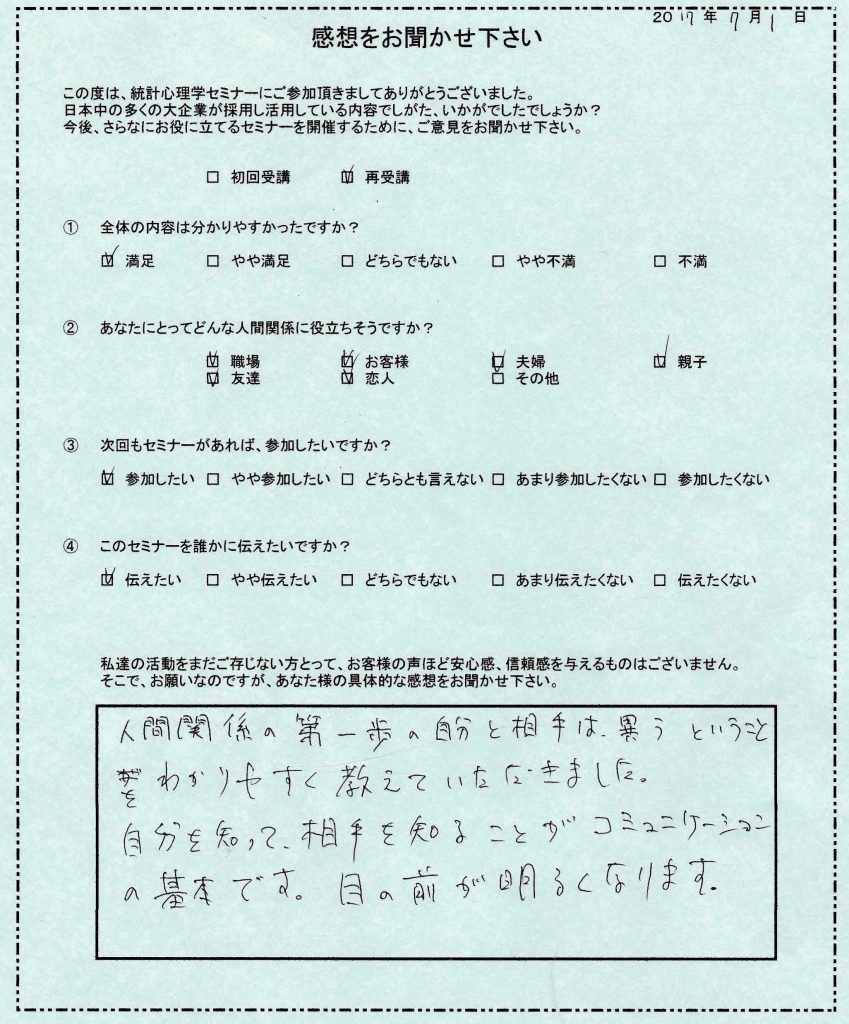 2017年7月1日
感想をお聞かせ下さい
この度は、統計心理学セミナーにご参加頂きましてありがとうございました。
日本中の多くの大企業が採用し活用している内容でしがた、いかがでしたでしょうか？
今後、さらなにお役に立てるセミナーを開催するために、ご意見をお聞かせ下さい。
□ 初回受講 ☑ 再受講
① 全体の内容は分かりやすかったですか？
☑ 満足 □ やや満足 □ どちらでもない □ やや不満 □ 不満
② あなたにとってどんな人間関係に役立ちそうですか？
☑ 職場 ☑ お客様 ☑ 夫婦 ☑ 親子
☑ 友達 ☑ 恋人 □ その他
③ 次回もセミナーがあれば、参加したいですか？
☑ 参加したい □ やや参加したい □ どちらとも言えない □ あまり参加したくない □ 参加したくない
④ このセミナーを誰かに伝えたいですか？
☑ 伝えたい □ やや伝えたい □ どちらでもない □ あまり伝えたくない □ 伝えたくない
私達の活動をまだご存じない方とって、お客様の声ほど安心感、信頼感を与えるものはございません。
そこで、お願いなのですが、あなた様の具体的な感想をお聞かせ下さい。
人間関係の第一歩の自分と相手は、異うということ
を わかりやすく教えていただきました。
自分を知って、相手を知ることがコミュニケーション
の基本です。目の前が明るくなります。